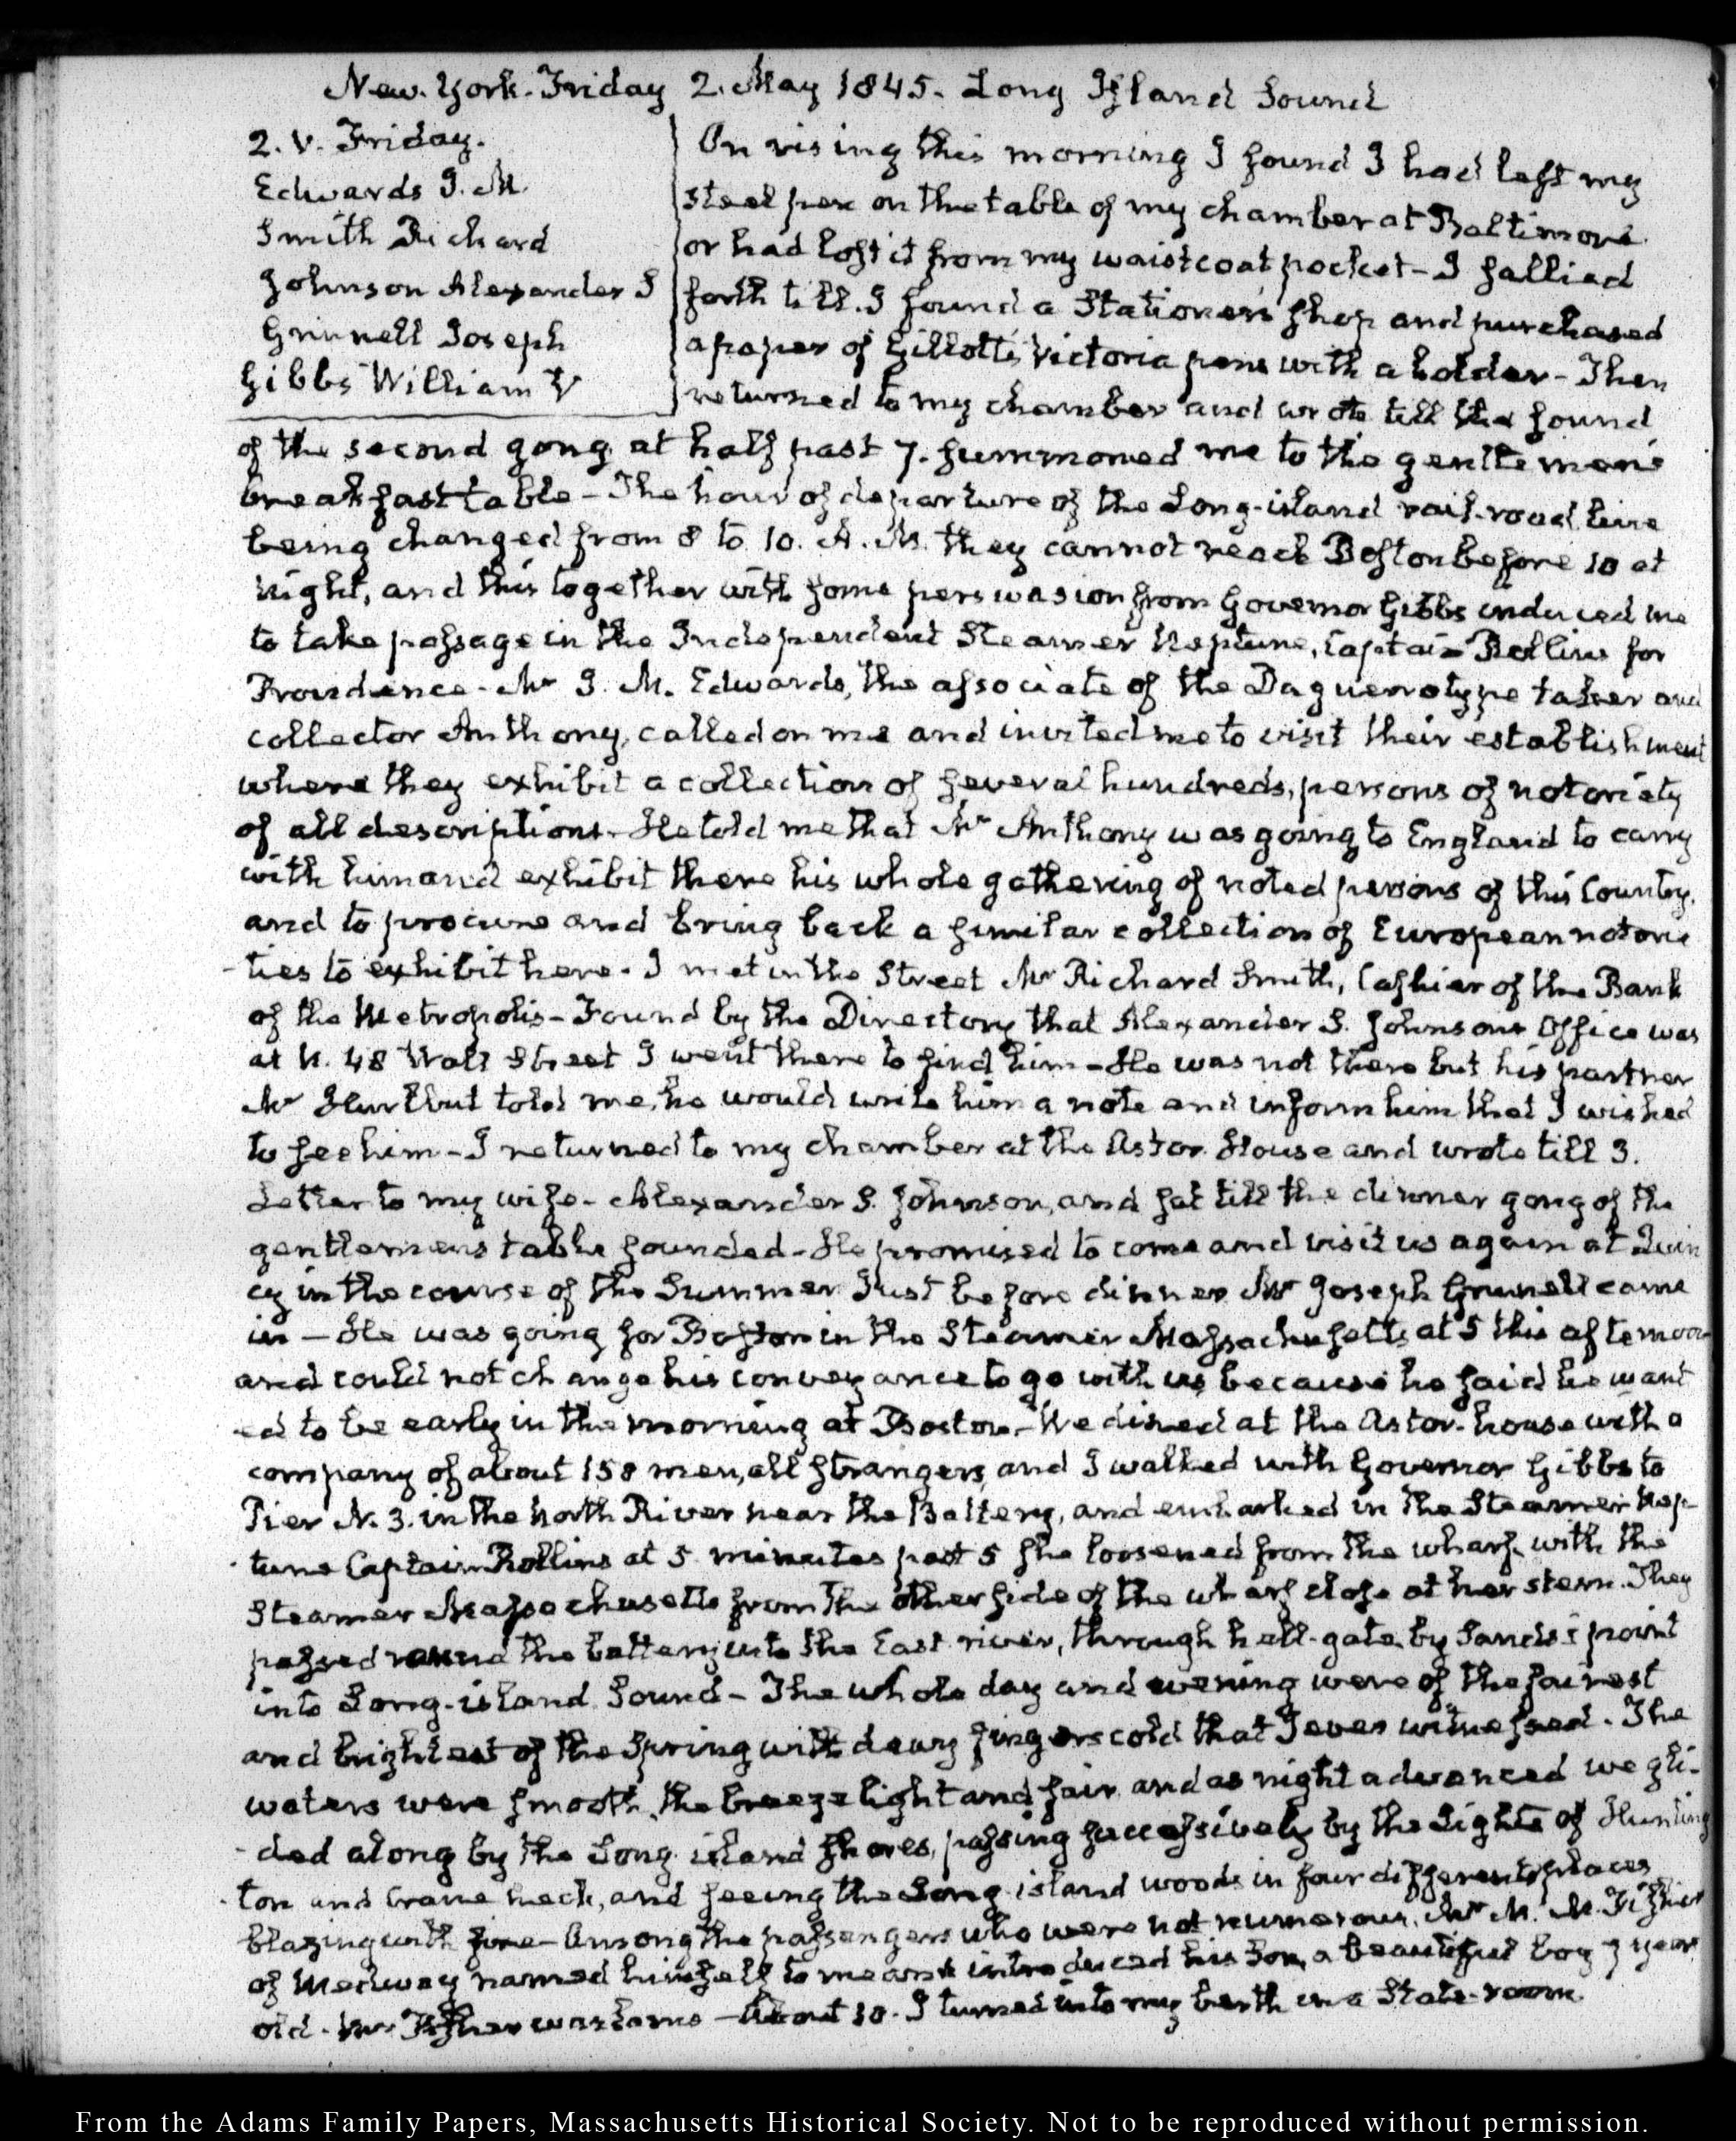 New-York. Friday 2. May 1845. Long Island Sound
2. V. Friday.
Edwards J. M.
Smith Richard
Johnson Alexander S
Grinnell Joseph
Gibbs William V
On rising this morning I found I had left my
steel pen on the table of my chamber at Baltimore
or had lost it from my waistcoat pocket – I sallied
forth till I found a Stationers shop and purchased
a paper of Gillott's Victoria pens with a holder – Then
returned to my chamber and wrote till the sound
of the second gong at half past 7. summoned me to the gentlemen's
breakfast table – The hour of departure of the Long-island rail-road line
being changed from 8 to 10. A.M. they cannot reach Boston before 10 at
night, and this together with some perswasion from Governor Gibbs induced me
to take passage in the Independent Steamer Neptune, Captain Rollins for
Providence – Mr J. M. Edwards, the associate of the Daguerrotype taker and
collector Anthony, called on me and invited me to visit their establishment
where they exhibit a collection of several hundreds, persons of notoriety
of all descriptions. He told me that Mr Anthony was going to England to carry
with him and exhibit there his whole gathering of noted persons of this Country,
and to procure and bring back a similar collection of European notorie
-ties to exhibit here. I met in the Street Mr Richard Smith, Cashier of the Bank
of the Metropolis – Found by the Directory that Alexander S. Johnsons Office was
at N. 48 Wall Street I went there to find him – He was not there but his partner
Mr Hurlbut told me, he would write him a note and inform him that I wished
to see him – I returned to my chamber at the Astor House and wrote till 3.
Letter to my wife – Alexander S. Johnson, and sat till the dinner gong of the
gentlemens table sounded – He promised to come and visit us again at Quin
cy in the course of the Summer Just before dinner Mr Joseph Grinnell came
in – He was going for Boston in the Steamer Massachusetts at 5 this afternoon
and could not change his conveyance to go with us because he said he want
-ed to be early in the morning at Boston – We dined at the Astor-house with a
company of about 150 men, all strangers and I walked with Governor Gibbs to
Pier N. 3. in the North River near the Battery, and embarked in the Steamer Nep-
tune Captain Rollins at 5 minutes past 5 she loosened from the wharf with the
Steamer Massachusetts from the other side of the wharf close at her stern. They
passed round the battery into the East river, through hell-gate, by Sands's point
into Long-island Sound – The whole day and evening were of the fairest
and brightest of the Spring with dewy fingers cold that I ever witnessed. The
waters were smooth, the breeze light and fair and as night advanced we gli-
-ded along by the Long island shores, passing successively by the Lights of Hunting
ton and Crane neck, and seeing the Long-island woods in four different places
blazing with fire – Among the passengers who were not numerous, Mr M. M. Fisher
of Medway named himself to me and introduced his Son, a beautiful boy 7 years
old. Mrs Fisher was – About 10. I turned into my berth in a State-room.
From the Adams Family Papers, Massachusetts Historical Society. Not to be reproduced without permission.